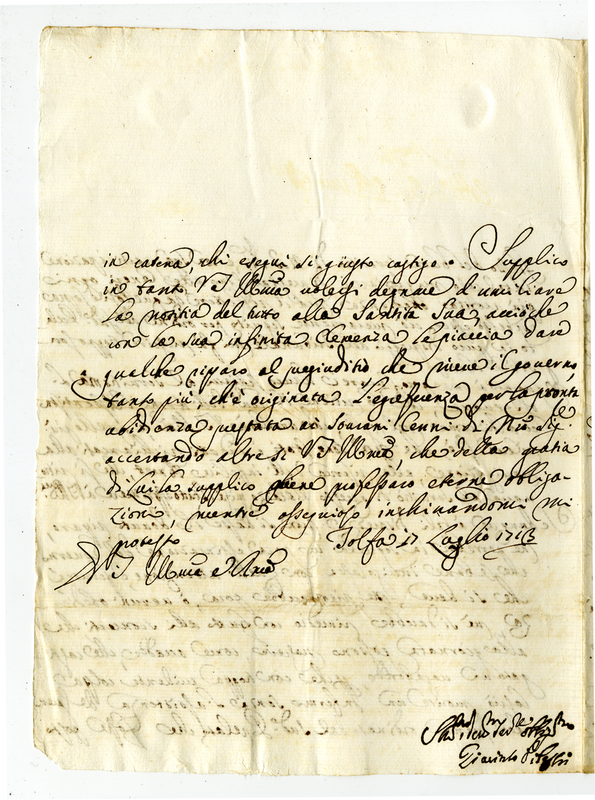 in catena, chi eseguì si giusto castigo. Supplico
in tanto V S Illma volersi degnare d'umiliare
la notitia del tutto alla Santità Sua, acciò che
con la sua infinita Clemenza le piaccia dare
qualche riparo al pregiuditio che riceve il governo,
tanto più, ch'è originata per la pronta
obidienza prestata ai Sovrani Cenni di Nro Sigre
accertando altresì V S Illma, che della gratia
di cui la supplico gliene professarò eterne obliga-
zioni, mentre ossequioso inchinandomi mi
protesto Tolfa 17 Luglio 1713
D V S Illma e Rma
Giacinto